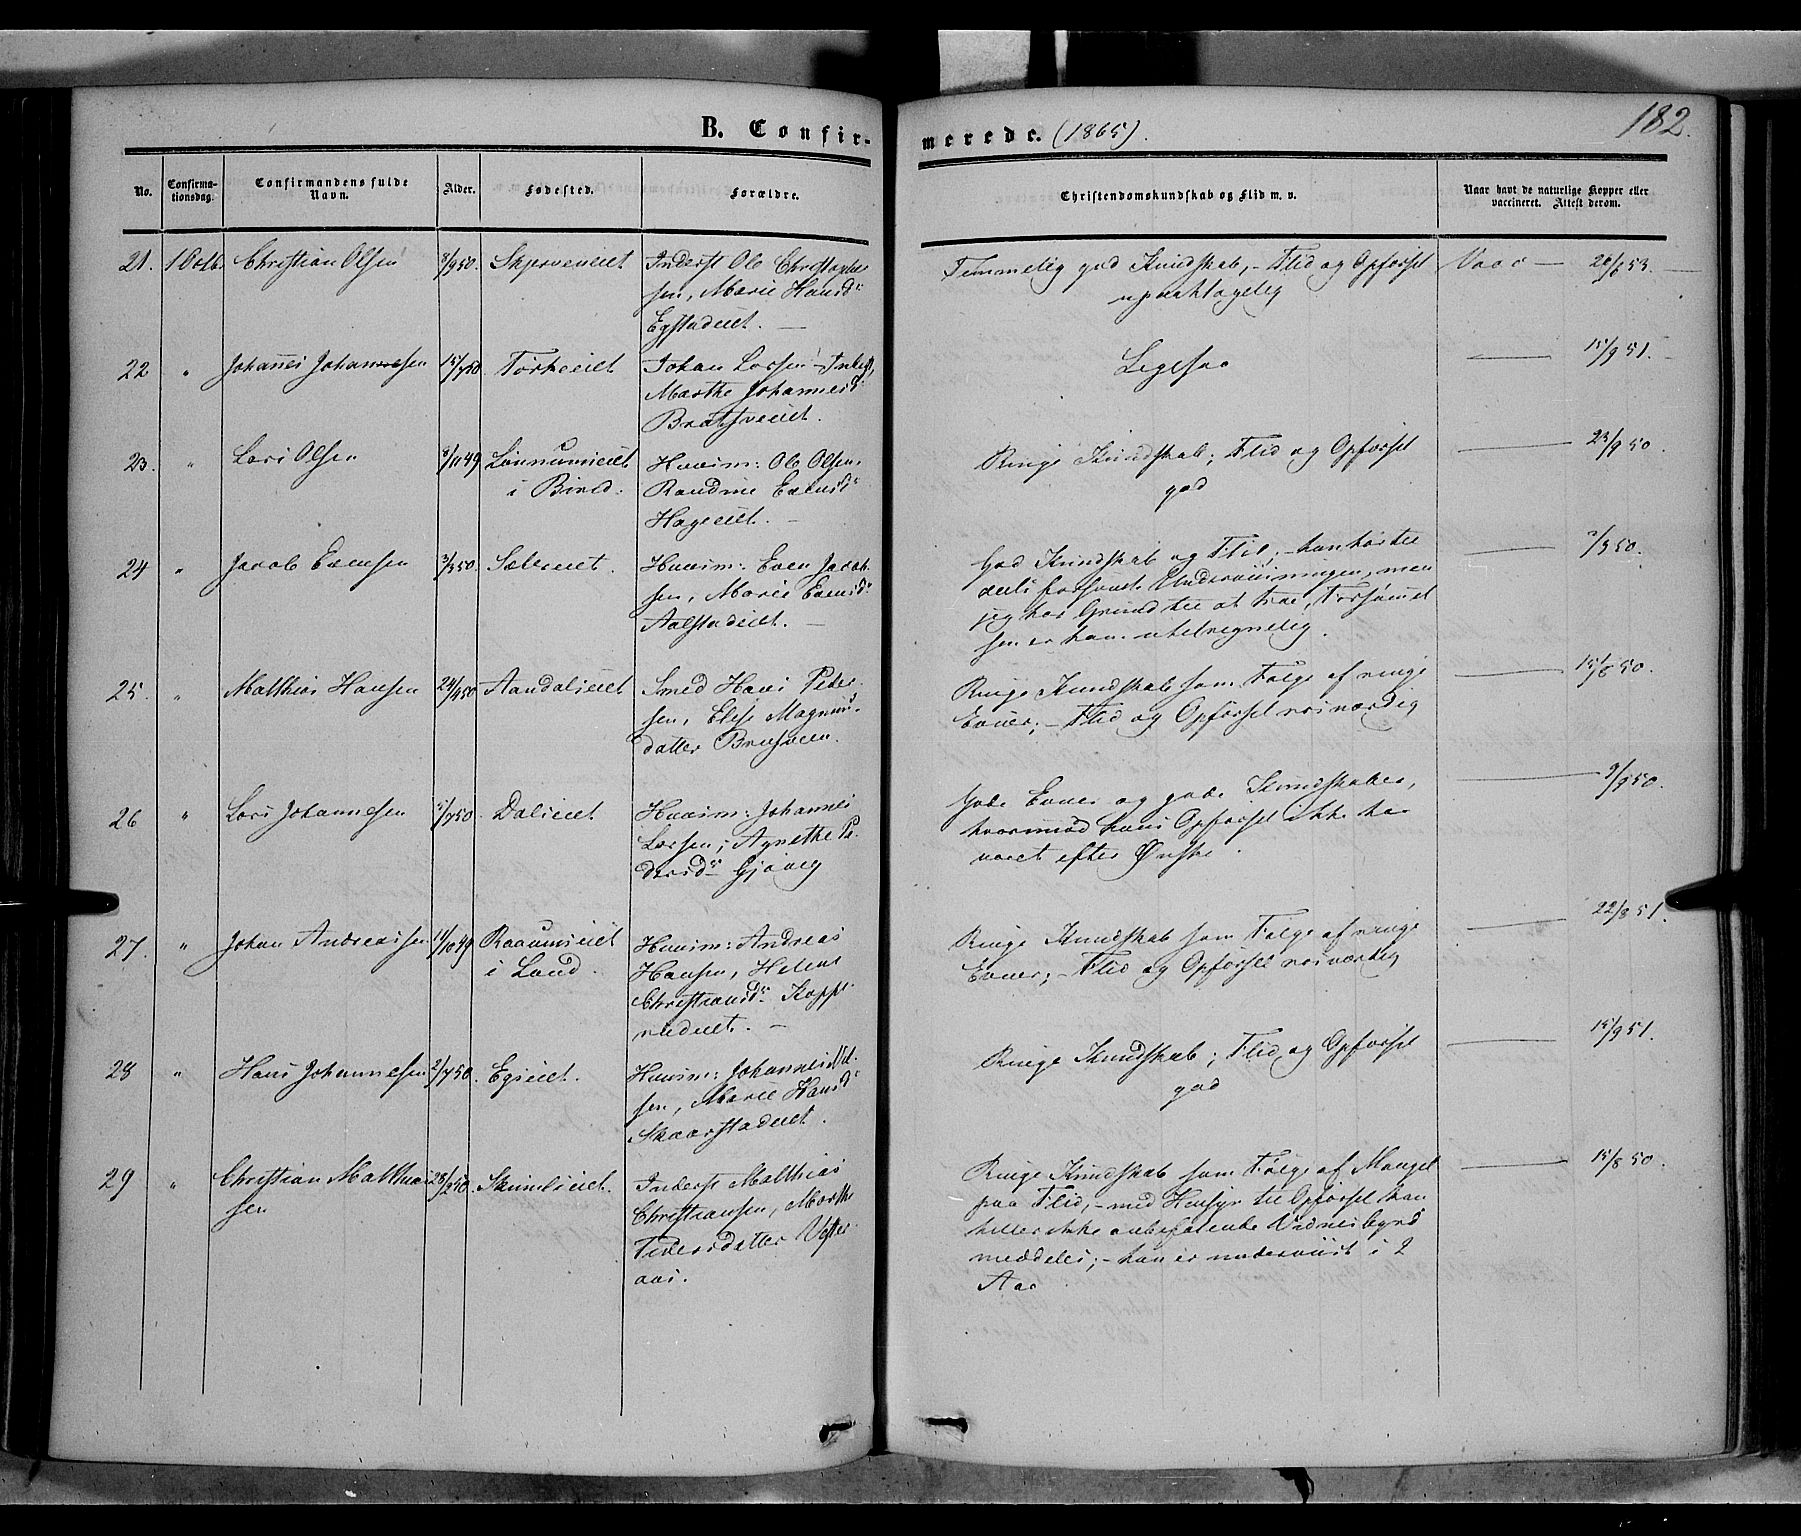 B. Confir-
merede. (1865).
182.
No.
Confirma-
tionsdag.
Confirmandens fulde
Navn.
Alder.
Fødested.
Forældre.
Christendomskundskab og Flid m. v.
Naar havt de naturlige Kopper eller
vaccineret. Attest derom.
21. 1 Octb. Christian Olsen 8/9 50. Inderst Ole Christopher
sen, Marie Hansdr
Egstadeiet. —
Temmelig god Kundskab, - Flid og Opførsel
upaaklagelig
Vacc — 26/6 53. —
22 " Johannes Johannesen 15/7 50 Johan Larsen
Marthe Johannesdr
Ligesaa
15/9 51. —
23. " Lars Olsen 8/11 49 Lønnumseiet
i Birid.
Huusm: Ole Olsen,
Randine Evensdr
Hageeiet. —
Ringe Kundskab; Flid og Opførsel
god
23/9 50.
24 " Jacob Evensen 3/3 50. Sætreeiet. Huusm: Even Jacob-
sen, Marie Evensdr
Aalstadeiet. —
God Kundskab og Flid; - han har til
dels forsømt Underviisningen, men
jeg har Grund til at troe, Forsømmel
sen er ham utilregnelig.
/3 50.
25. " Matthias Hansen 24/4 50 Aandalseiet Smed Hans Peder-
sen, Elise Magnus-
datter Brusveen.
Ringe Kundskab som Følge af ringe
Evner; - Flid og Opførsel rosværdig
15/8 50.
26 " Lars Johannesen 5/7 50. Dalseiet Huusm: Johannes
Larsen, Agnethe Pe
dersdr Gjøvig
Gode Evner og gode Kundskaber,
hvorimod hans Opførsel ikke har
været efter Ønske.
9/9 50.
27. " Johan Andreassen 11/10 49 Raaumseiet
i Land.
Huusm: Andreas
Hansen, Helene
Christiansdr Kopp
rudeiet. —
Ringe Kundskab som Følge af ringe
Evner; - Flid og Opførsel rosværdig
22/8 51.
28 " Hans Johannesen 2/7 50. Egseiet. Huusm: Johannes Niel-
sen, Marie Hansdr
Skaarstadeiet.
Ringe Kundskab; Flid og Opførsel
god
15/9 51.
29 " Christian Matthias
sen
28/2 50. Inderst Matthias
Christiansen, Marthe
Pedersdatter Vester
aas.
Ringe Kundskab som Følge af Mangel
paa Flid, - med Hensyn til Opførsel kan
heller ikke anbefalende Vidnesbyrd
meddeles; - han er underviist i 2
Aar
15/8 50.